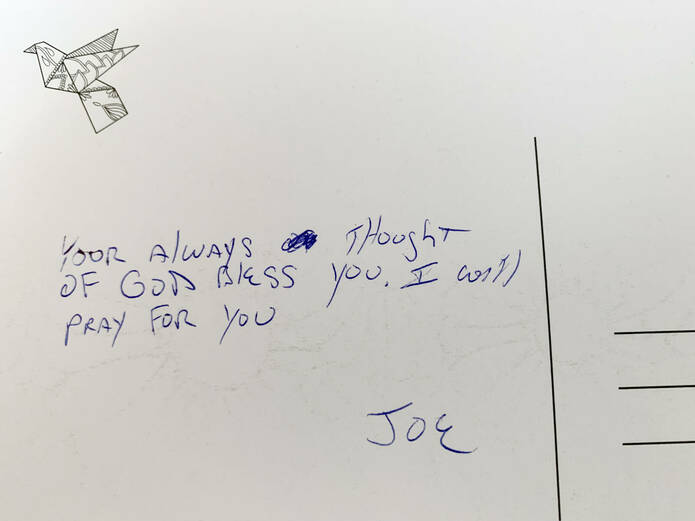 YOUR ALWAYS THOUGHT
OF GOD BLESS YOU. I
PRAY FOR YOU
JOE